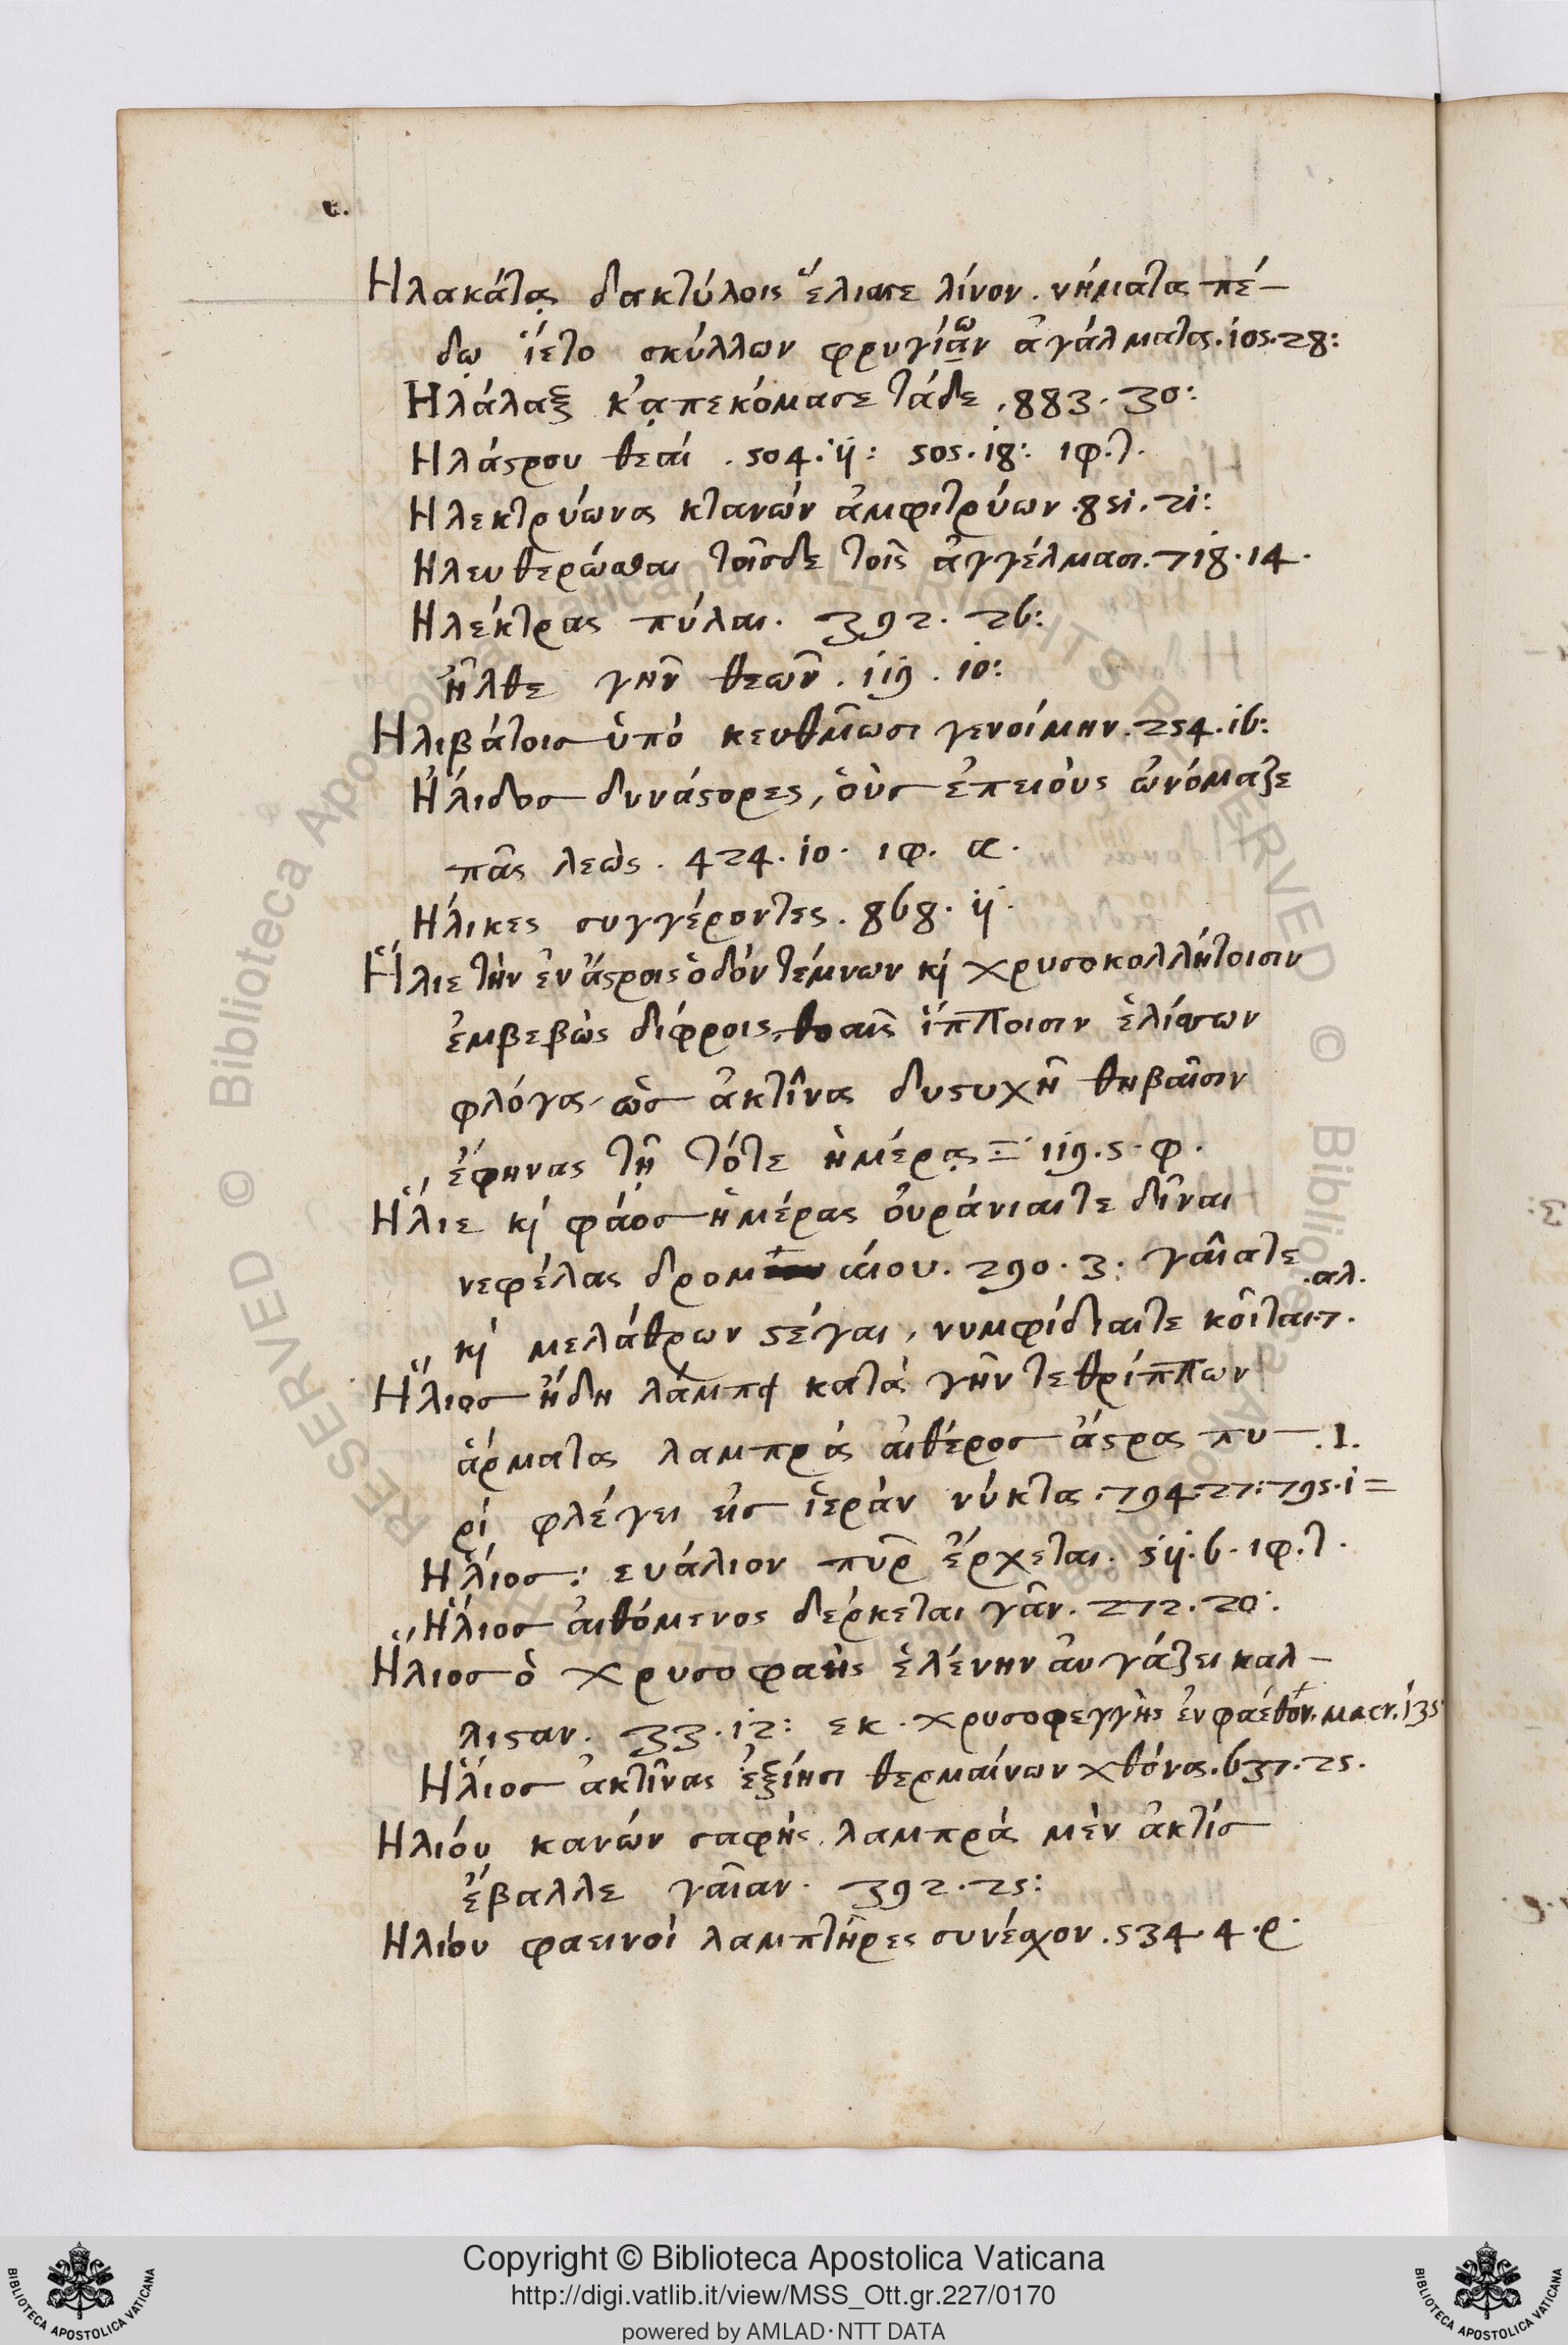 e.
Ηλακάτᾳ δακτύλοις ἕλισσε λίνον. νήματα πέ-
δῳ ἵετο σκύλλων φρυγίαν ἀγάλματα. 105. 28:
Ηλάλαξε κἀπεκόμασε τάδε. 883. 30:
Ηλάστρου θεαί. 504. ij: 505. 18: ιφ. τ.
Ηλεκτρύωνα κτανών ἀμφιτρύων. 851. 21:
Ηλευθερώσθαι τοῖσδε τοῖς ἀγγέλμασι. 718. 14.
Ηλέκτρας πύλαι. 392. 26:
ἦλθε γῆν θεῶν. 119. 10:
Ηλιβάτοισ ὑπό κευθμῶσι γενοίμην. 254. 16:
Ἤλιδοσ δυνάστορες, οὓσ ἐπειοὺς ὠνόμαζε
πᾶς λεὼς. 424. 10. ιφ. α.
Ηλικες συγγέροντες. 868. ij
Ἥλιε τὴν ἐν ἄστροις ὁδόν τέμνων κὶ χρυσοκολλήτοισιν
ἐμβεβὼς δίφροις, θοαῖς ἵπποισιν ἑλίσσων
φλόγα, ὡσ ἀκτῖνα δυστυχῆ θηβαῖσιν
ἐφηνας τῇ τότε ἡμέρᾳ 119. 5. φ.
Ἅλιε κὶ φάοσ ἡμέρας οὐράνιαιτε δῖναι
νεφέλας δρομαίου. 290. 3: γαῖατε
.αλ.
κὶ μελάθρων στέγαι, νυμφίδιαιτε κοῖται. 7.
Ἥλιοσ ἤδη λάμπει κατά γῆν τεθρίππων
ἅρματα λαμπρά αἰθέροσ ἄστρα πυ- .Ι.
ρί φλέγει εἰσ ἱεράν νύκτα. 794. 27: 795. 1 =
Ηλίοσ: ευάλιον πῦρ ἔρχεται. 5ij. 6. ιφ. τ.
Ἅλιοσ αἰθόμενος δέρκεται γᾶν. 272. 20:
Ἥλιοσ ὁ χρυσοφαὴς ἑλένην αὐγάζει καλ-
λισταν. 33. 12: εκ. χρυσοφεγγὴς ἐν φαέθον. macr. 135
Ἅλιοσ ἀκτῖνας ἐξίησι θερμαίνων χθόνα. 637. 25.
Ηλιόυ κανών σαφὴς. λαμπρά μὲν ἀκτίσ
ἔβαλλε γαῖαν. 392. 25:
Ηλίου φαεινοί λαμπτῆρες συνέσχον. 534. 4. ρ.
Copyright © Biblioteca Apostolica Vaticana
http://digi.vatlib.it/view/MSS_Ott.gr.227/0170
powered by AMLAD·NTT DATA
BIBLIOTECA APOSTOLICA VATICANA
BIBLIOTECA APOSTOLICA VATICANA